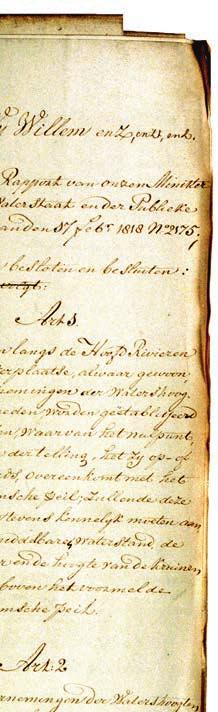 Willem enz, enz, enz.
Rapport van onzen Minister
Waterstaat en der Publieke
van den 17 Febr 1818 No 2175,
besloten en besluiten:
Art 1.
langs de Hoofd Rivieren
ter plaatse, alwaar gewoon
nemingen der Waters hoog
worden geëtablisseerd
waarvan het nulpunt,
der telling, het zij op- of
overeenkomt met het
sche Peil, zullende deze
tevens kennelijk moeten aan
middelbare waterstand de
en de hoogte van de kruinen
boven het voormelde
msche peil.
Art: 2
rnemingen der Waters hoogten